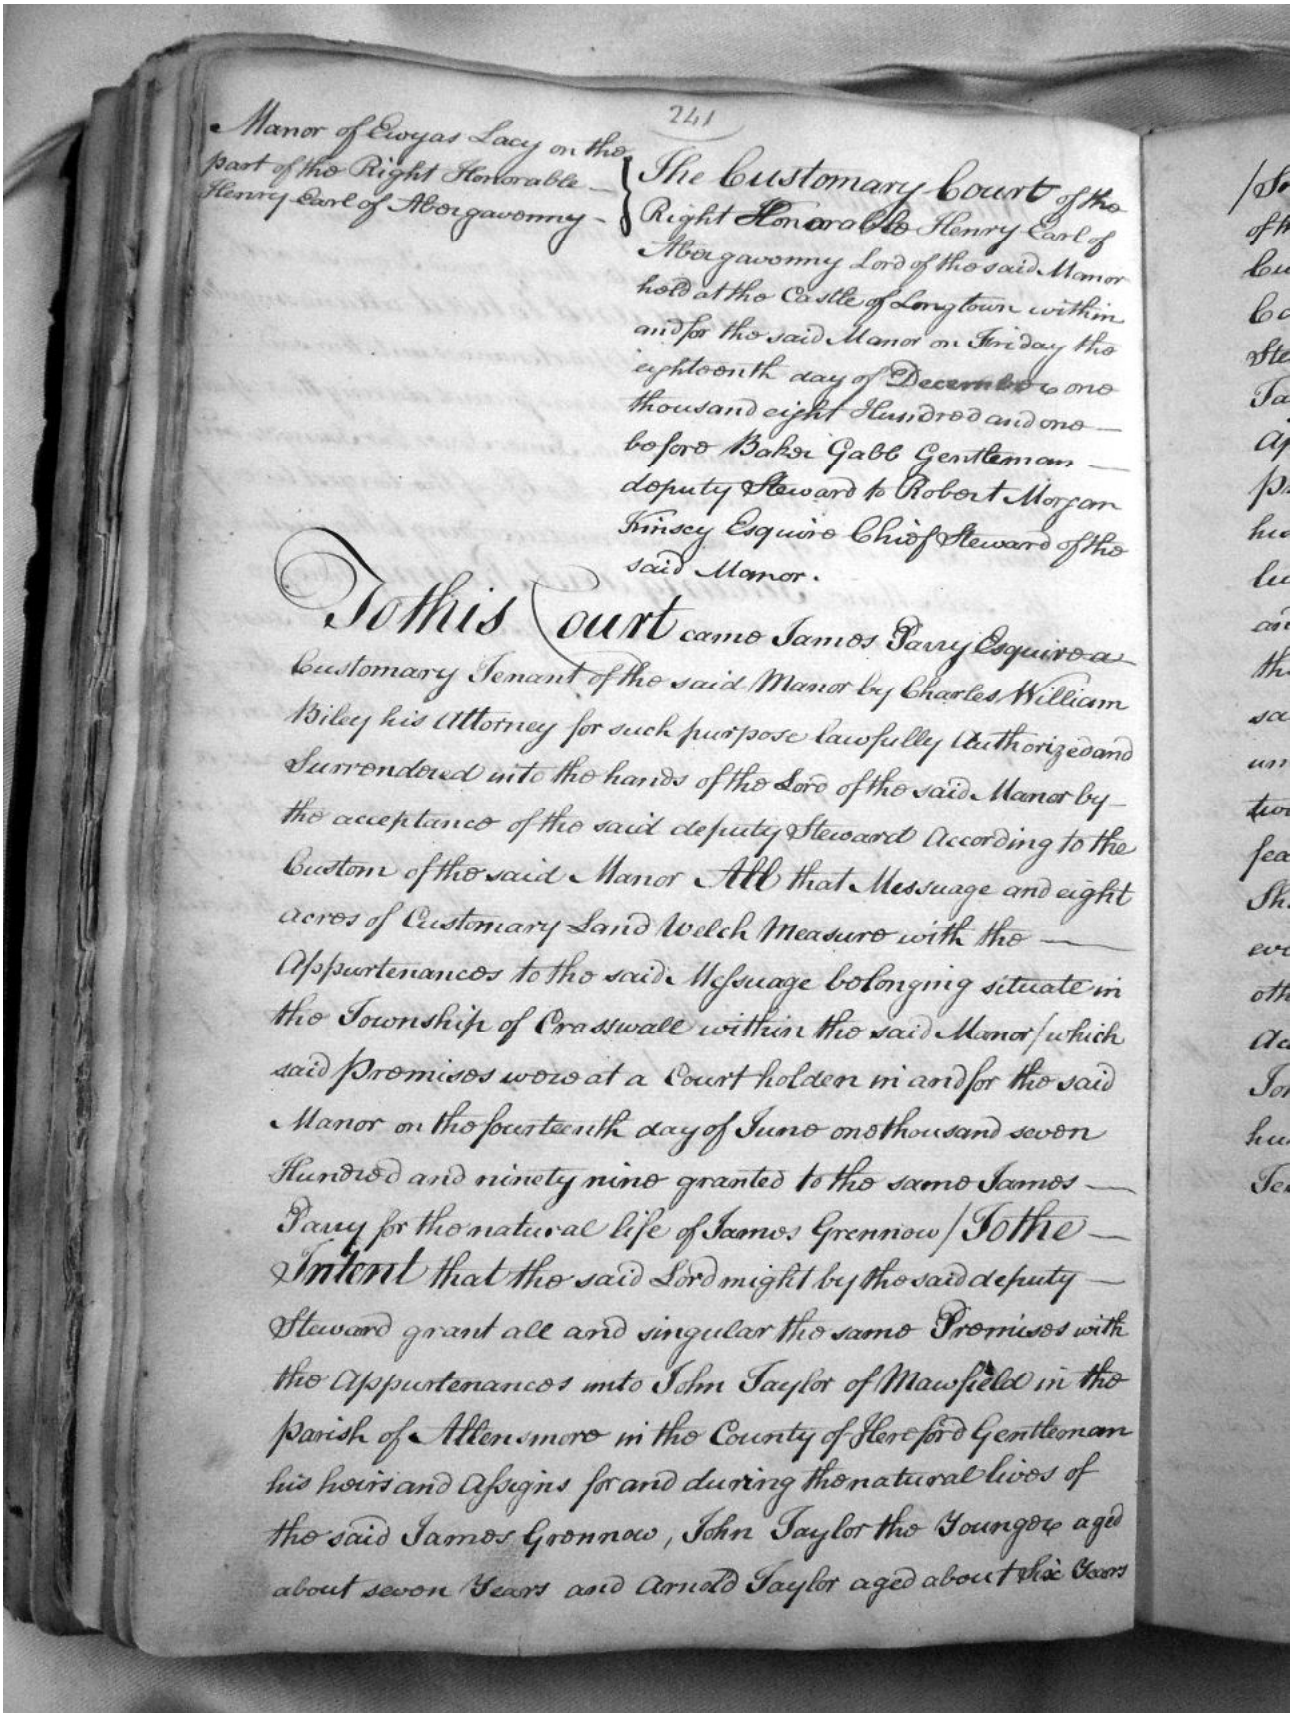 241
Manor of Ewyas Lacy on the
part of the Right Honorable
Henry Earl of Abergavenny
The Customary Court of the
Right Honorable Henry Earl of
Abergavenny Lord of the said Manor
held at the Castle of Longtown within
and for the said Manor on Friday the
eighteenth day of December one
thousand eight Hundred and one
before Baker Gabb Gentleman
deputy Steward to Robert Morgan
Kinsey Esquire Chief Steward of the
said Manor.
To this Court came James Parry Esquire a
Customary Tenant of the said Manor by Charles William
Biley his Attorney for such purpose lawfully Authorized and
Surrendered into the hands of the Lord of the said Manor by
the acceptance of the said deputy Steward According to the
Custom of the said Manor All that Messuage and eight
acres of Customary Land Welch Measure with the
Appurtenances to the said Messuage belonging situate in
the Township of Crasswall within the said Manor / which
said Premises were at a Court holden in and for the said
Manor on the fourteenth day of June one thousand seven
Hundred and ninety nine granted to the same James
Parry for the natural life of James Grennow / To the
Intent that the said Lord might by the said deputy
Steward grant all and singular the same Premises with
the Appurtenances unto John Taylor of Mawfield in the
parish of Allensmore in the County of Hereford Gentleman
his heirs and Assigns for and during the natural lives of
the said James Grennow, John Taylor the Younger aged
about seven Years and Arnold Taylor aged about Six Years